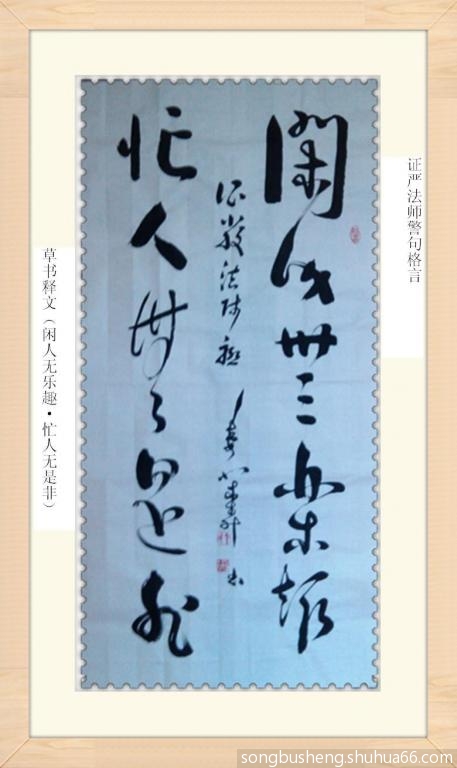 证严法师警句格言
閑人無樂趣
证严法师
忙人無是非
草书释文（闲人无乐趣·忙人无是非）
songbusheng.shuhua66.com